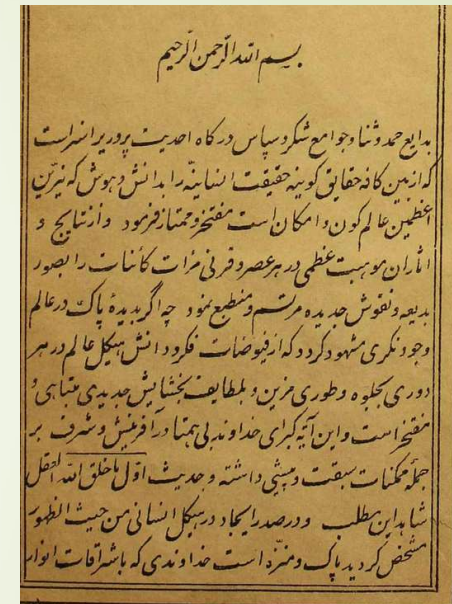 بسم الله الرّحمن الرّحيم
بدایع حمد و ثنا و جوامع شکر و سپاس درگاه احدیت پروردگاریرا سزاست
که از بین کافهٔ حقایق کونیه حقیقت انسانیّه را بدانش و هوش که نیّرین
اعظمین عالم کون و امکان است مفتخر و ممتاز فرمود و از نتایج و
آثار ان موهبت عظمی در هر عصر و قرنی مرآت کائنات را بصور
بدیعه و نقوش جدیده مرتسم و منطبع نمود چه اگر بدیدهٔ پاک در عالم
وجود نگری مشهود گردد که از فیوضات فکر و دانش هیکل عالم در هر
دوری بجلوه و طوری مزین و بلطایف بخشایش جدیدی متباهی و
مفتخر است و این آیهٔ کبرای خداوند بی همتا در آفرینش و شرف بر
جمله ممکنات سبقت و پیشی داشته و حدیث اوّل ما خلق الله العقل
شاهد این مطلب و در صدر ایجاد در هیکل انسانی من حیث الظهور
مشخص گردید پاک و منزّه است خداوندی که باشراقات انوار